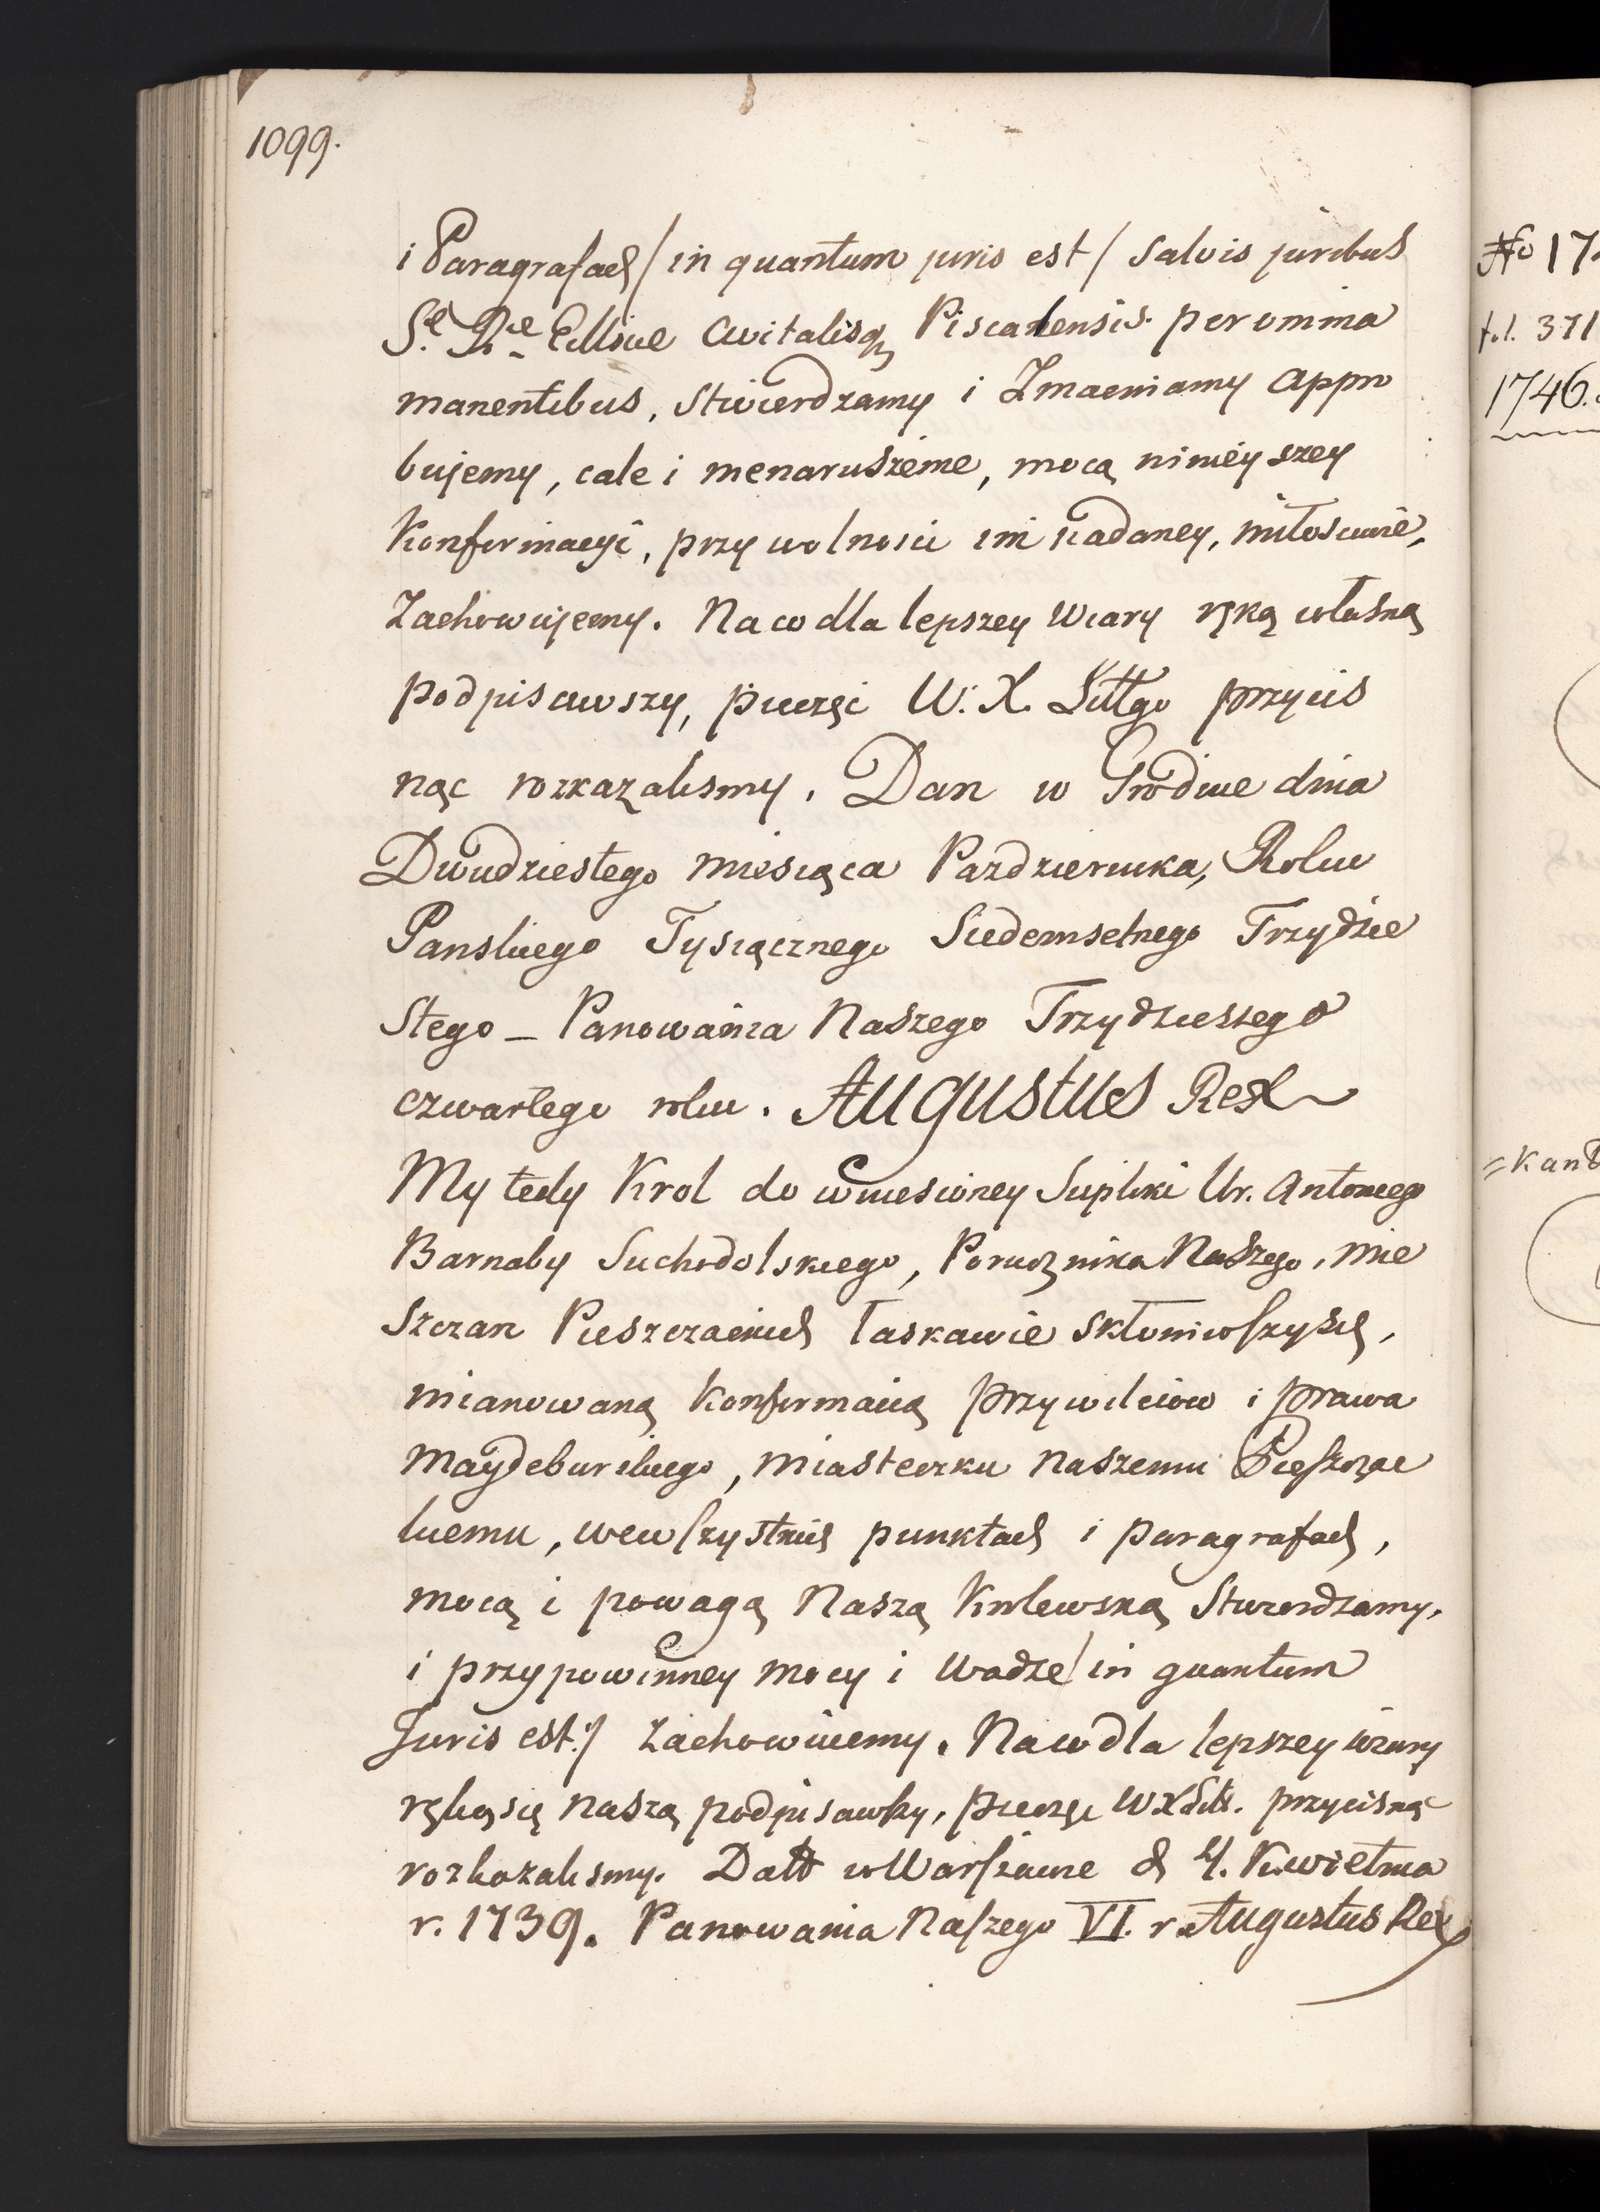 1099.
i Paragrafach / in quantum juris est / Salvis juribus
Se. Rae Ecclsiae Civitatisq Piscacensis. per omnia
manentibus, Stwierdzamy i Zmacniamy appro
bujemy, cale i nienaruszenie, mocą ninieyszey
Konfirmacyi, przy wolnosci im nadaney, miłosciwie,
Zachowujemy. Na co dla lepszey Wiary ręką własną
podpisawszy, pieczęć W. X. Littgo przycis
nąc rozkazalismy. Dan w Grodnie dnia
Dwudziestego miesiąca Pazdziernika, Roku
Panskiego Tysiącznego Siedemsetnego Trzydzie
Stego _ Panowania Naszego Trzydziestego
czwartego roku. Augustus Rex
My tedy Krol do wniesioney Supliki Ur. Antoniego
Barnaby Suchodolskiego, Porucznika Naszego, mie
Szczan Pieszczackich łaskawie skłoniwszy się,
mianowaną Konfirmacią przywileiow i prawa
Maydeburskiego, miasteczku Naszemu Pieszczac
kiemu, wewszystkich punktach i paragrafach,
mocą i powagą Naszą Krolewską Stwierdzamy,
i przy powinney mocy i Wadze / in quantum
Juris est:/ zachowuiemy. Na co dla lepszey wiary
ręką się naszą podpisawszy, pieczęc WXLitt. przycisnąć
rozkazalismy. Datt w Warszawie d 4. Kwietnia
r. 1739. Panowania Naszego VI. r. Augustus Rex
No 17
fol. 371
1746.